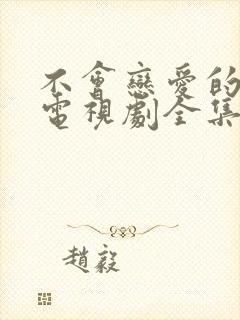 不會戀愛的
電視劇全集
趙毅